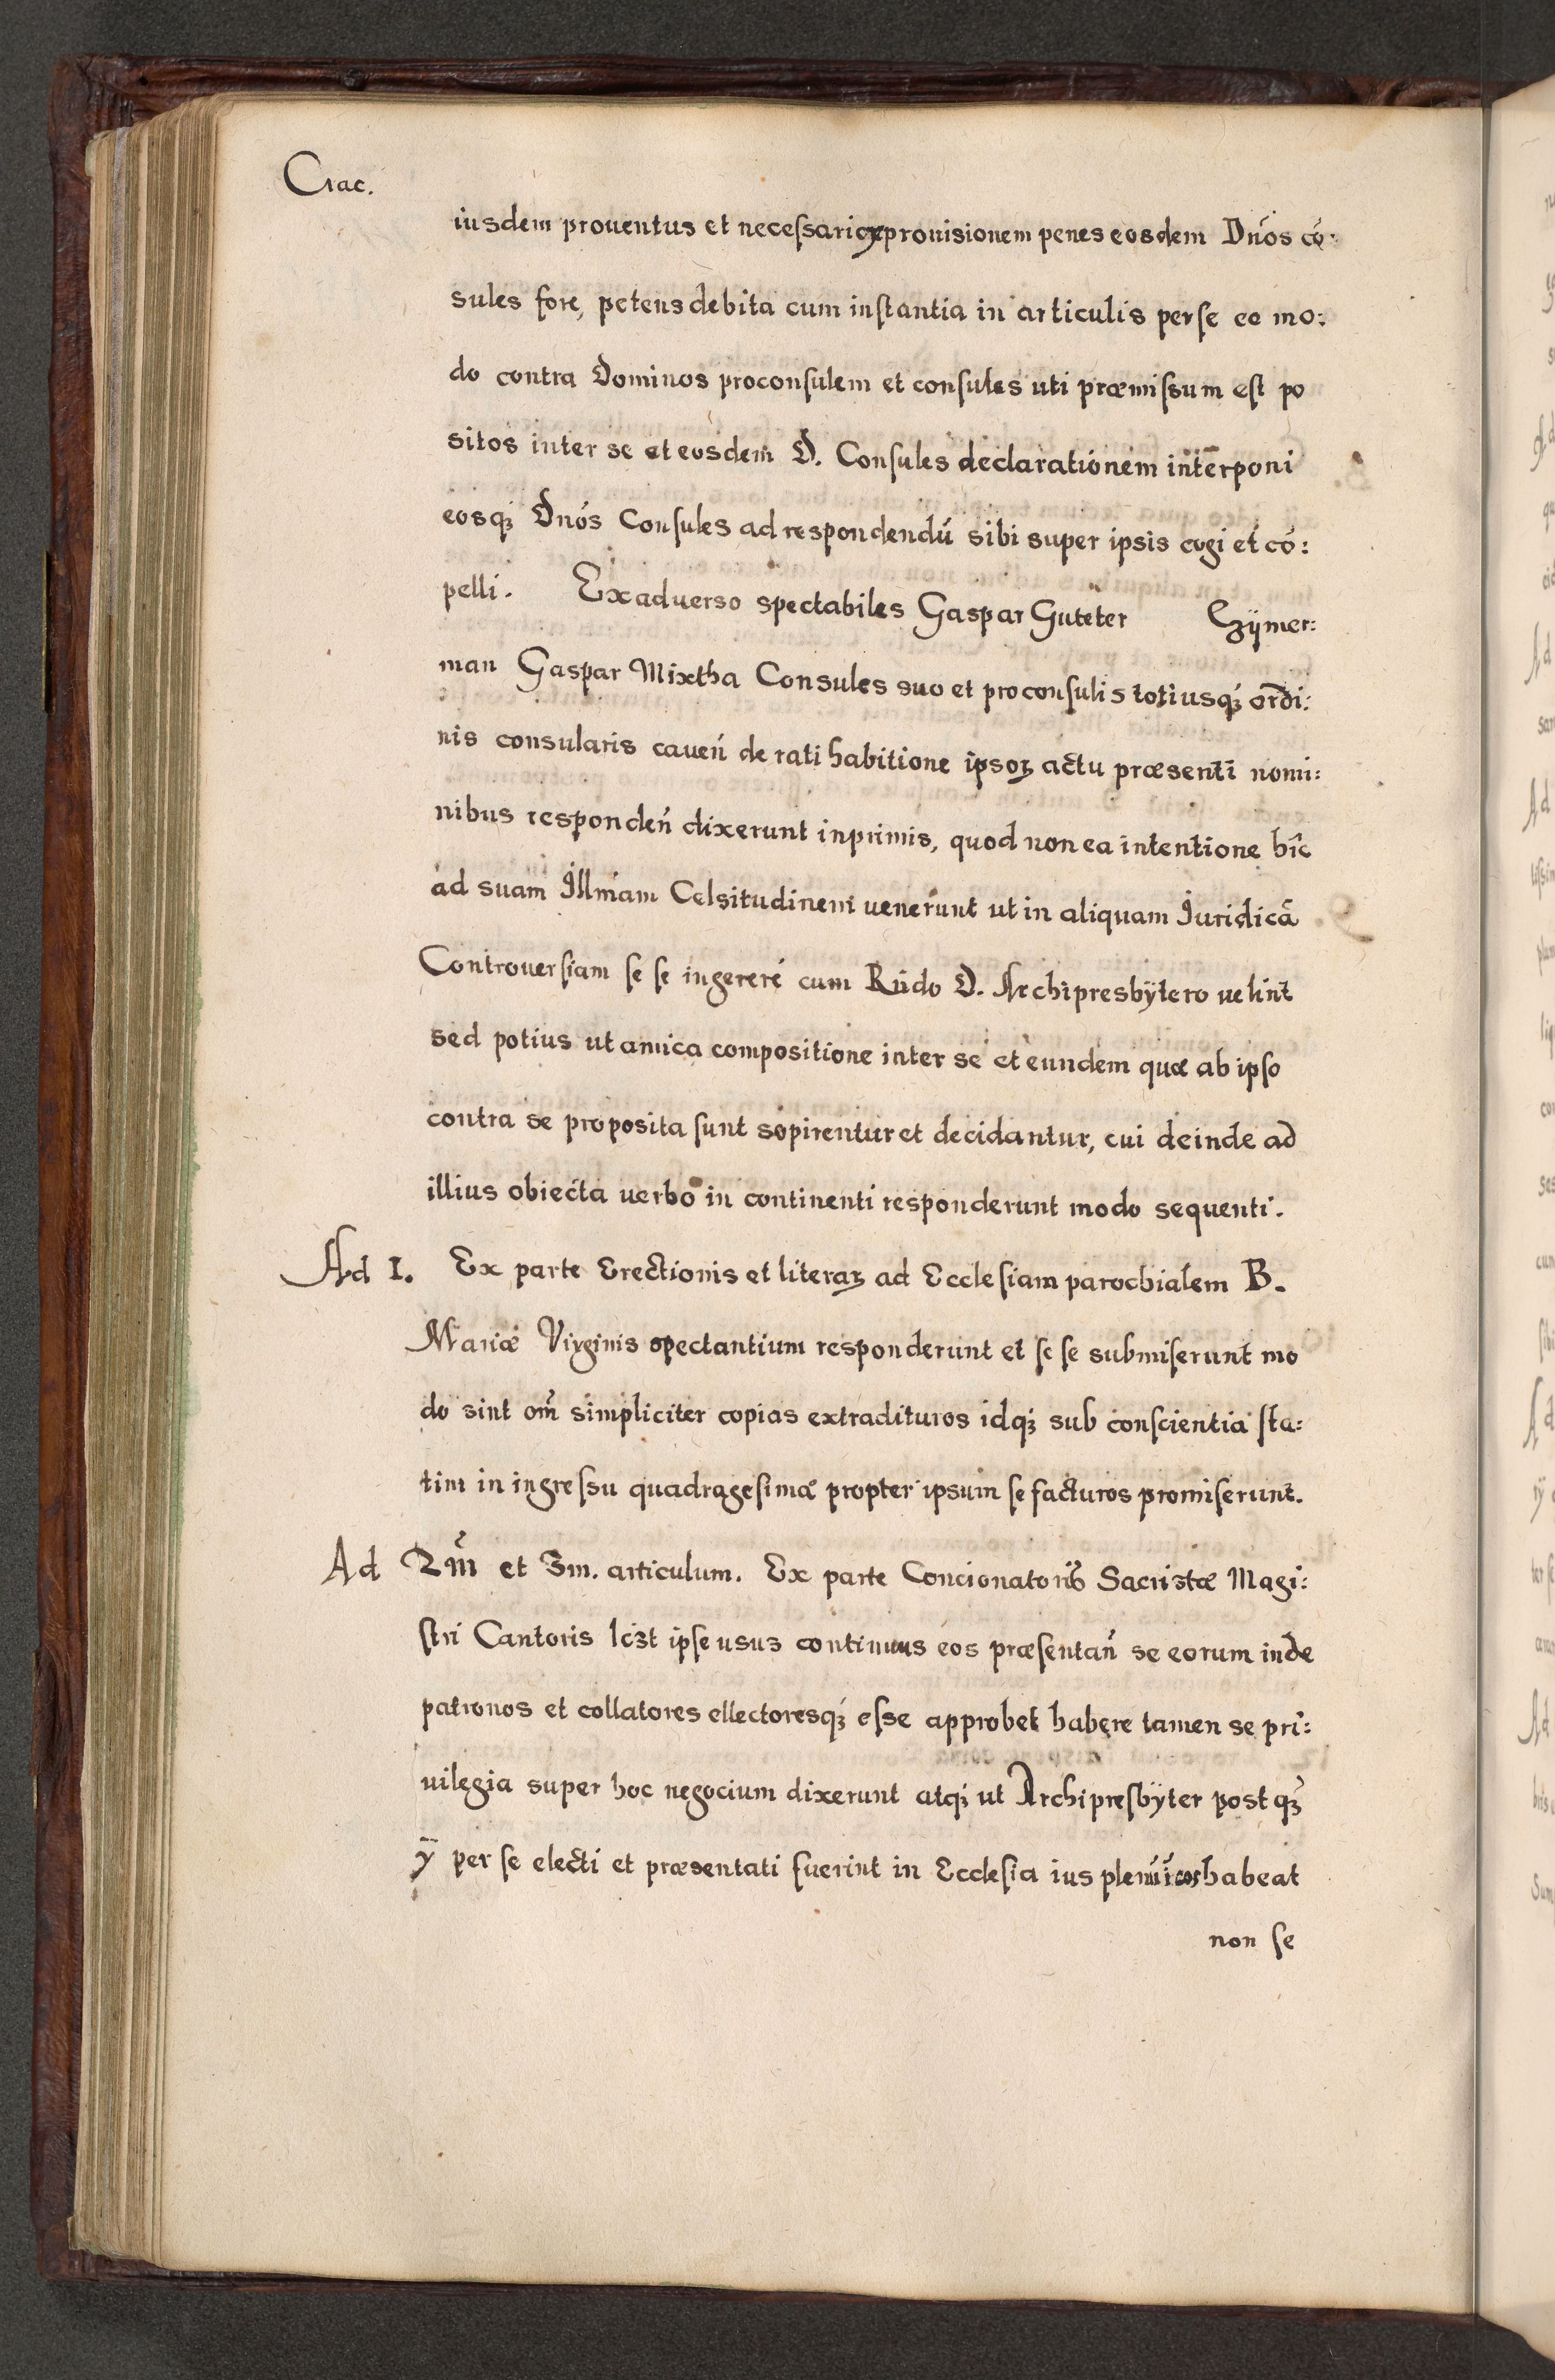 Crac.
iusdem prouentus et necessariā prouisionem penes eosdem Dnós có:
sules fore, petens debita cum instantia in articulis per se eo mo:
do contra Dominos proconsulem et consules uti præmissum est po
sitos inter se et eosdem D. Consules declarationem interponi
eosq́ꝫ Dnós Consules ad respondendū sibi super ipsis cogi et có:
pelli. Ex aduerso spectabiles Gaspar Guteter Czÿmer:
man Gaspar Mixtha Consules suo et proconsulis totiusq́ꝫ ordi:
nis consularis cauen̄ de rati habitione ipsoꝝ actu præsenti nomi:
nibus responden̄ dixerunt inprimis, quod non ea intentione hîc
ad suam Illmam Celsitudinem uenerunt ut in aliquam Iuridicā
Controuersiam se se ingereré cum Rúdo D. Archipresbÿtero uelint
sed potius ut amica compositione inter se et eundem quæ ab ipso
contra se proposita sunt sopirentur et decidantur, cui deinde ad
illius obiecta uerbo in continenti responderunt modo sequenti.
Ad 1. Ex parte Erectionis et literaꝝ ad Ecclesiam parochialem B.
Mariæ Virginis spectantium responderunt et se se submiserunt mo
do sint om̄ simpliciter copias extradituros idq́ꝫ sub conscientia sta:
tim in ingressu quadragesimæ propter ipsum se facturos promiserunt.
Ad 2m̄ et 3m. articulum. Ex parte Concionatoris Sacristæ Magi:
stri Cantoris licet ipse usus continuus eos præsentan̄ se eorum inde
patronos et collatores ellectoresq́ꝫ esse approbet habere tamen se pri:
uilegia super hoc negocium dixerunt atq́ꝫ ut Archipresbÿter postq́ꝫ
ÿ per se electi et præsentati fuerint in Ecclesia ius plenū ī eos habeat
non se